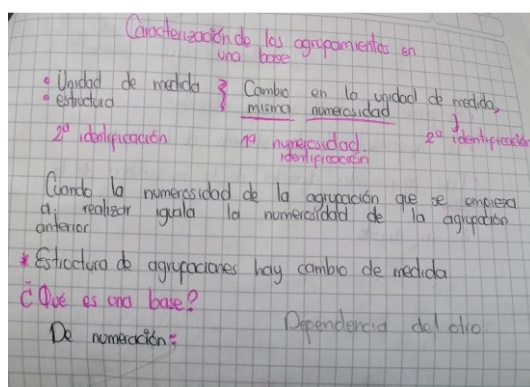 Caracterización de los agrupamientos en
una base
• Unidad de medida } Cambio en la unidad de medida,
• estructura misma numerosidad
2º identificación 1º numerosidad. 2º identificación
identificación
Cuando la numerosidad de la agrupación que se empieza
a realizar iguala la numerosidad de la agrupación
anterior
* Estructura de agrupaciones hay cambio de medida
¿Qué es una base?
De numeración: Dependencia del otro.